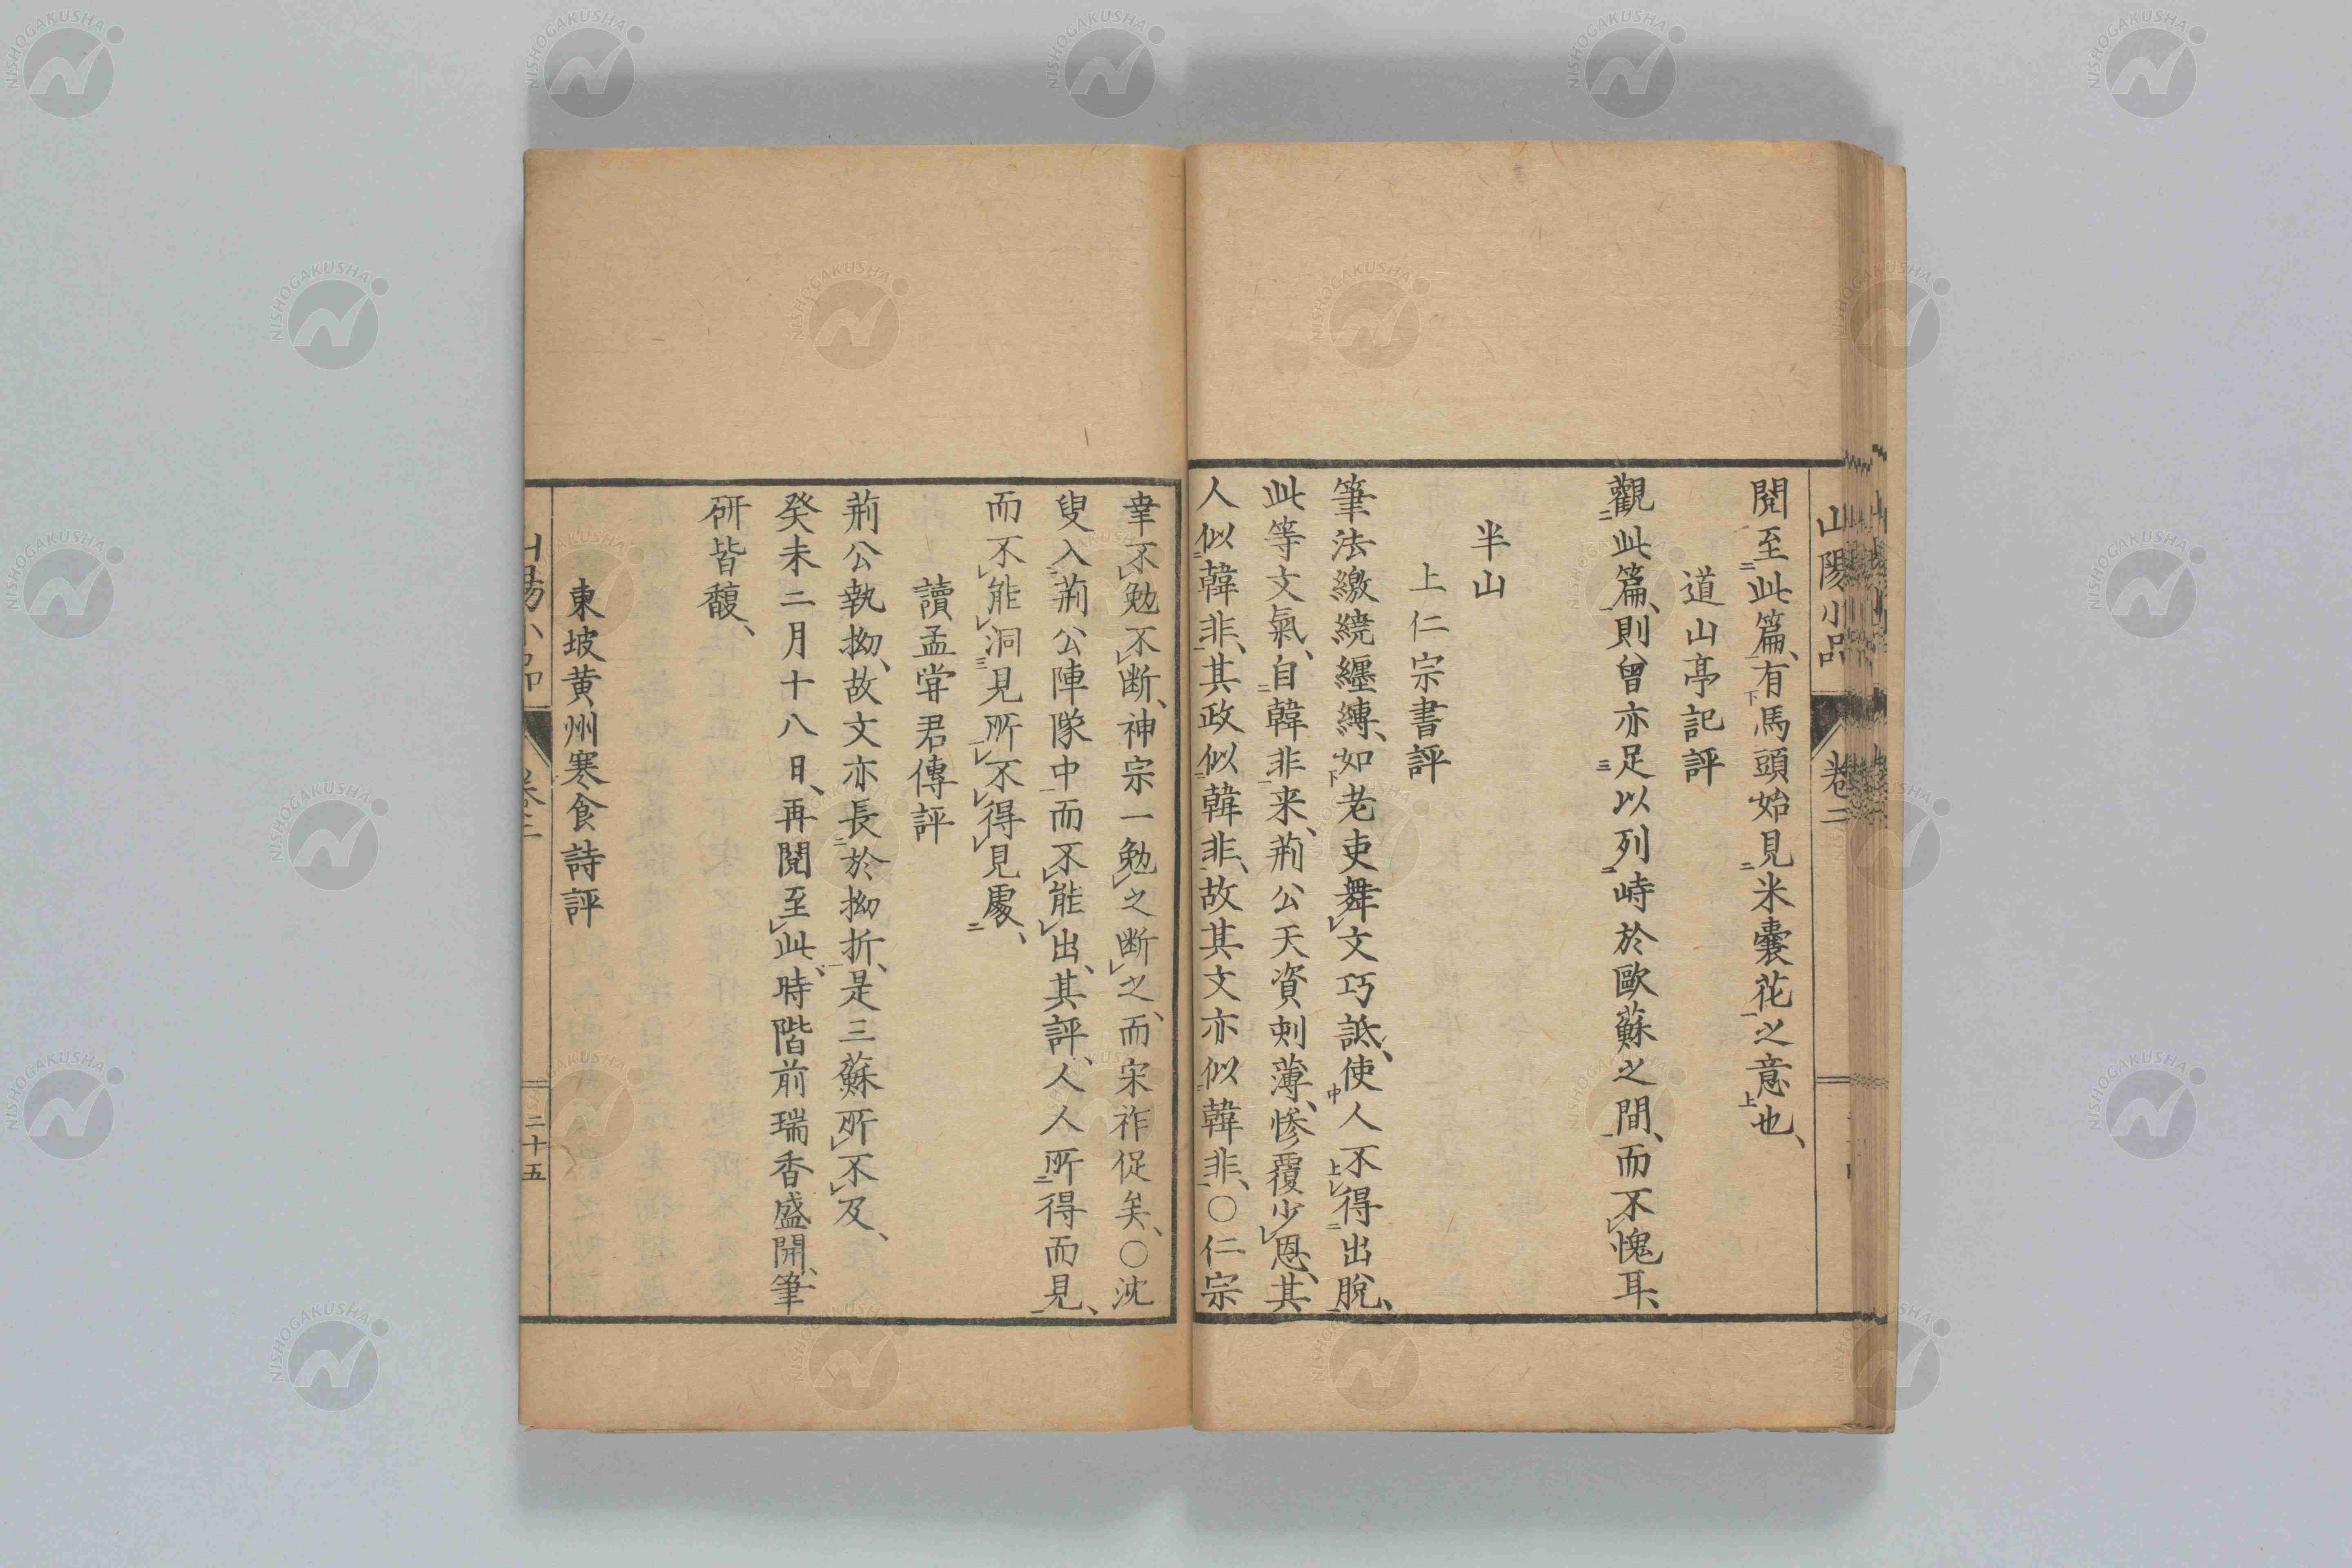 山陽小品 卷二
閱至此篇、有馬頭始見米囊花之意也、
道山亭記評
觀此篇、則曾亦足以列峙於歐蘇之間、而不愧耳、
半山
上仁宗書評
筆法繳繞纏縛、如老吏舞文巧詆、使人不得出脫、
此等文氣、自韓非来、荊公天資刺薄、惨覆少恩、其
人似韓非、其政似韓非、故其文亦似韓非、〇仁宗
幸不勉不断、神宗一勉之断之、而宋祚促矣、〇沈
叟入荊公陣隊中而不能出、其評、人人所得而見、
而不能洞見所不得見處、
讀孟甞君傳評
荊公執拗、故文亦長於拗折、是三蘇所不及、
癸未二月十八日、再閱至此、時階前瑞香盛開、筆
研皆馥、
東坡黄州寒食詩評
二十五
NISHOGAKUSHA